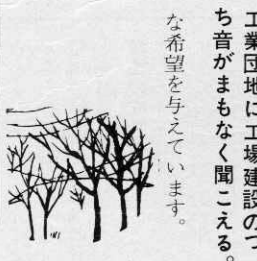 工業団地に工場建設のつ
ち音がまもなく聞こえる。
な希望を与えています。